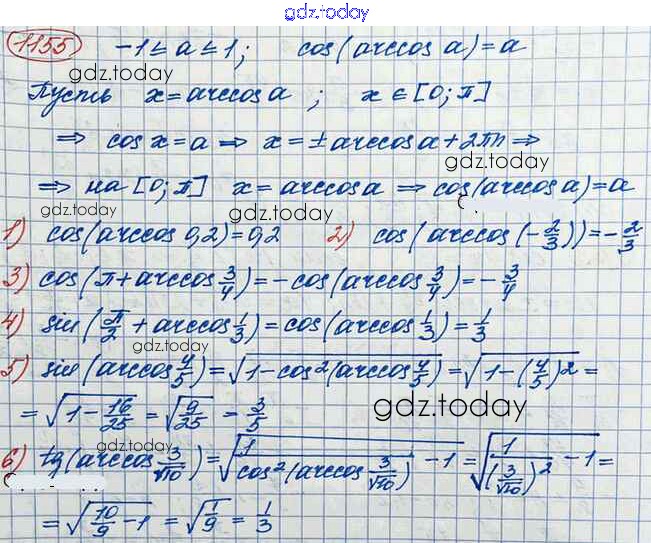 gdz.today
1155 -1 ≤ a ≤ 1; cos(arccos a) = a
gdz.today
Пусть x = arccos a ; x ∈ [0; π]
gdz.today
⇒ cos x = a ⇒ x = ± arccos a + 2πn ⇒
gdz.today
⇒ на [0; π] x = arccos a ⇒ cos(arccos a) = a
gdz.today gdz.today
1) cos(arccos 0,2) = 0,2 2) cos(arccos(-2/3)) = -2/3
3) cos(π + arccos 3/4) = -cos(arccos 3/4) = -3/4
4) sin(π/2 + arccos 1/3) = cos(arccos 1/3) = 1/3
gdz.today
5) sin(arccos 4/5) = √(1 - cos²(arccos 4/5)) = √(1 - (4/5)²) =
= √(1 - 16/25) = √(9/25) = 3/5
gdz.today
6) tg(arccos 3/√10) = √(1/cos²(arccos 3/√10) - 1) = √(1/(3/√10)² - 1) =
= √(10/9 - 1) = √(1/9) = 1/3
gdz.today